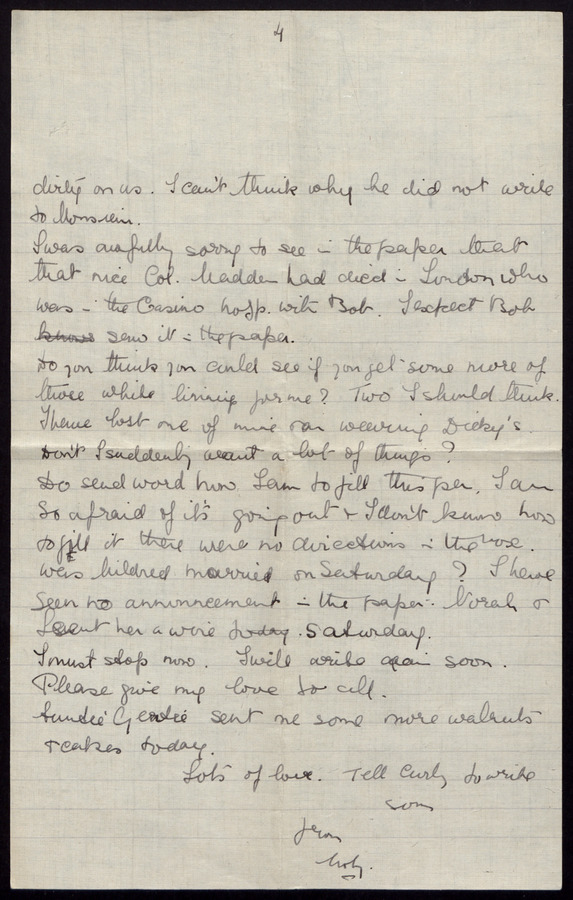 4
dirty on us. I can't think why he did not write
to Monsieur.
I was awfully sorry to see in the paper that
that nice Col. Madden had died in London who
was in the Casino hosp. with Bob. I expect Bob
knows seen it in the paper.
Do you think you could see if you get some more of
those white lining for me? Two I should think.
I have lost one of mine & am wearing Dicky's.
Don't I suddenly want a lot of things?
Do send word how I am to fill this pen. I am
so afraid of it's going out & I don't know how
to fill it there were no directions in the box.
Was Mildred married on Saturday? I have
seen no announcement in the paper. Norah &
I sent her a wire today. Saturday.
I must stop now. I will write again soon.
Please give my love to all.
Auntie Gertie sent me some more walnuts
& cakes today.
Lots of love. Tell Curly to write
soon
from